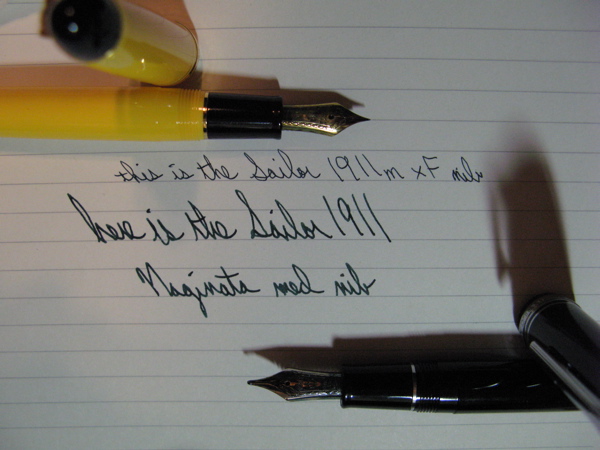 this is the Sailor 1911m xF nib
here is the Sailor 1911
Naginata med nib